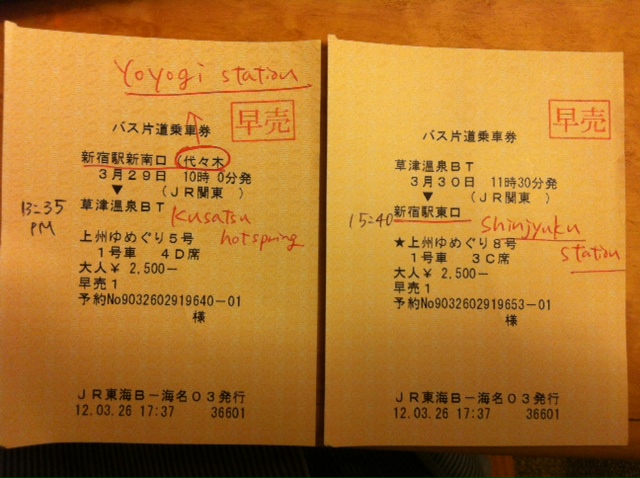 Yoyogi station
早売
バス片道乗車券
新宿駅新南口(代々木
3月29日 10時 0分発
▼ (JR関東 )
13=35
PM
草津温泉BT
Kusatsu
hotspring
上州ゆめぐり5号
1号車 4D席
大人¥ 2,500-
早売1
予約No9032602919640-01
様
JR東海B-海名03発行
12.03.26 17:37 36601
早売
バス片道乗車券
草津温泉BT
3月30日 11時30分発
▼ (JR関東 )
15=40
新宿駅東口
Shinjyuku
station
★上州ゆめぐり8号
1号車 3C席
大人¥ 2,500-
早売1
予約No9032602919653-01
様
JR東海B-海名03発行
12.03.26 17:37 36601